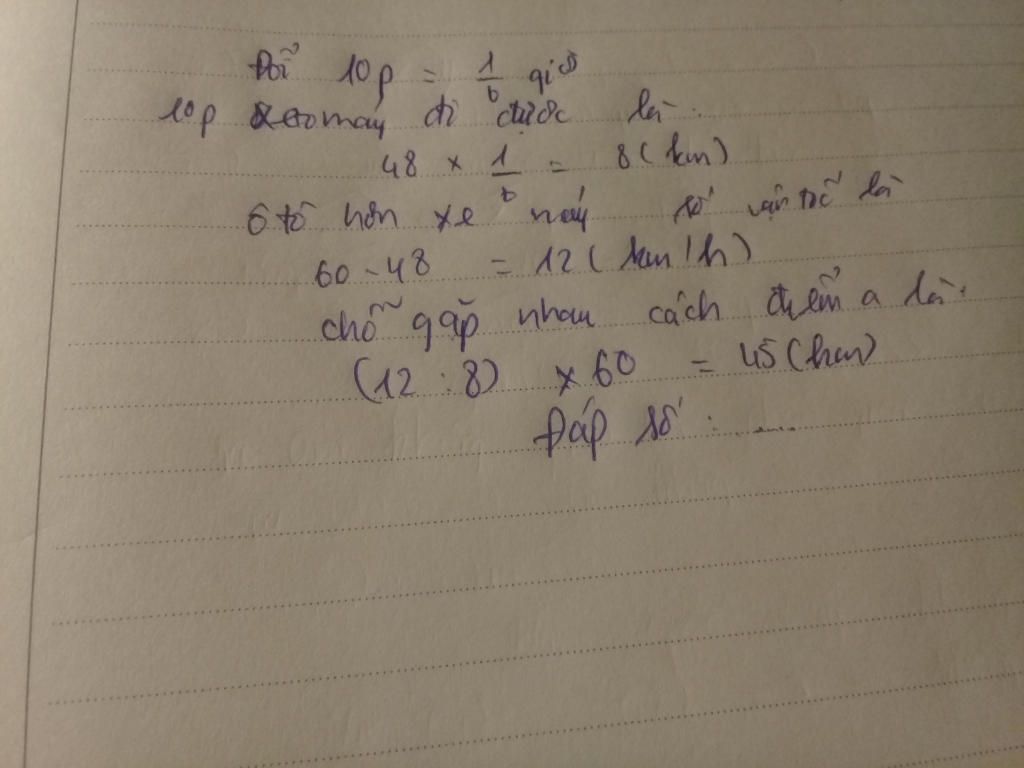 Đổi 10p = 1/6 giờ
10p xe máy đi được là:
48 x 1/6 = 8 (km)
Ô tô hơn xe máy số vận tốc là
60 - 48 = 12 (km/h)
chỗ gặp nhau cách điểm a là:
(12 : 8) x 60 = 45 (km)
Đáp số : .....